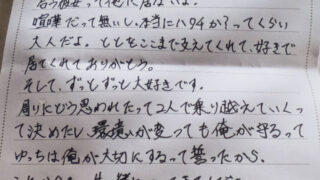 喧嘩だって無いし、本当にハタチか?ってくらい
大人だよ。ととをここまで支えてくれて、好きで
居てくれてありがとう。
そして、ずっとずっと大好きです。
周りにどう思われたって2人で乗り越えていくっ
て決めたし、環境が変っても俺が守るって
ゆっちは俺が大切にするって誓ったから。